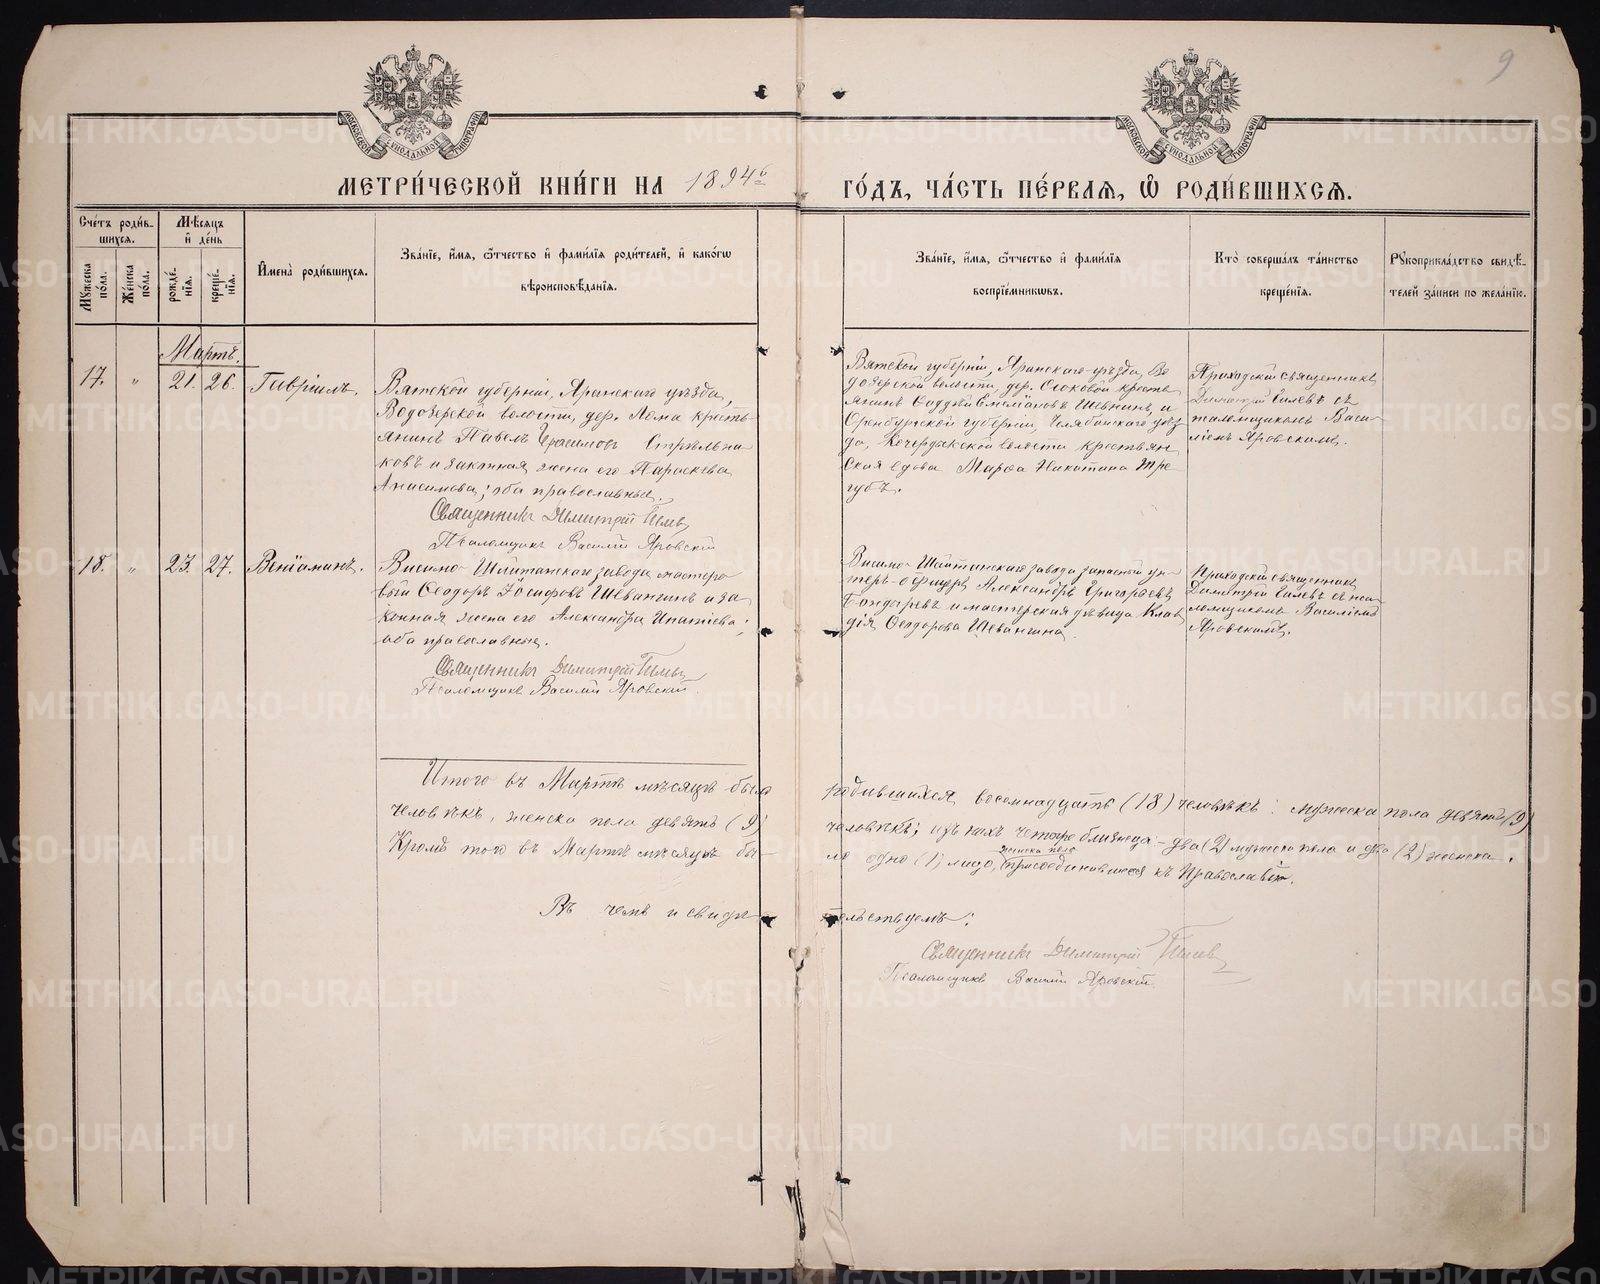 9
МЕТРИ́ЧЕСКОЙ КНИ́ГИ НА 1894й ГО́ДЪ, ЧА́СТЬ ПЕ́РВАЯ, Ѽ РОДИ́ВШИХСЯ.
МОСКОВСКОЙ СѴНОДАЛЬНОЙ ТИПОГРАФІИ
МОСКОВСКОЙ СѴНОДАЛЬНОЙ ТИПОГРАФІИ
Сче́тъ роди́в-
шихся.
Мꙋ́жеска по́ла.
Же́нска по́ла.
Мѣ́сяцъ
и҆ де́нь
рожде́нїя.
креще́нїя.
И҆мена̀ роди́вшихся.
Зва́нїе, и҆́мя, ѻ҆́тчество и҆ фами́лїя роди́телей, и҆ како́гѡ
вѣроисповѣ́данїя.
Зва́нїе, и҆́мя, ѻ҆́тчество и҆ фами́лїя
воспрїе́мникѡвъ.
Кто̀ соверша́лъ та́инство
креще́нїя.
Рꙋкоприкла́дство свидѣ́-
телей за́писи по жела́нїю.
Мартъ.
17. " 21. 26. Гавріилъ.
Вятской губерніи, Яранскаго уѣзда,
Водозерской волости, дер. Лома кресть-
янинъ Павелъ Герасимовъ Стрѣльни-
ковъ и законная жена его Параскева
Анисимова; оба православные.
Священникъ Димитрій
Псаломщикъ Василій Яровскій
Вятской губерніи, Яранскаго уѣзда, Во-
дозерской волости, дер. кресть-
янинъ Емеліановъ и
Оренбургской губерніи, Челябинскаго уѣз-
да, Кочердакской волости крестьян-
ская вдова Марѳа Никитина
Приходскій священникъ
Димитрій съ
псаломщикомъ Васи-
ліемъ Яровскимъ.
18. " 23. 27. Веніаминъ.
Висимо-Шайтанскаго завода мастеро-
вой Ѳеодоръ Іосифовъ Шевангинъ и за-
конная жена его Александра Ипатіева;
оба православные.
Священникъ Димитрій
Псаломщикъ Василій Яровскій.
Висимо-Шайтанскаго завода запасной ун-
теръ-офицеръ Александръ Григорьевъ
Бондыревъ и мастерская дѣвица Клав-
дія Ѳеодорова Шевангина.
Приходскій священникъ
Димитрій съ пса-
ломщикомъ Василіемъ
Яровскимъ.
Итого въ Мартѣ мѣсяцѣ было родившихся восемнадцать (18) человѣкъ: мужеска пола девять (9)
человѣкъ, женска пола девять (9) человѣкъ; изъ нихъ четыре близнеца - два (2) мужеска пола и два (2) женска.
женска пола
Кромѣ того въ Мартѣ мѣсяцѣ бы-ло одно (1) лицо, присоединившееся къ Православію.
Въ чемъ и свидѣтельствуемъ:
Священникъ Димитрій
Псаломщикъ Василій Яровскій.
METRIKI.GASO-URAL.RU